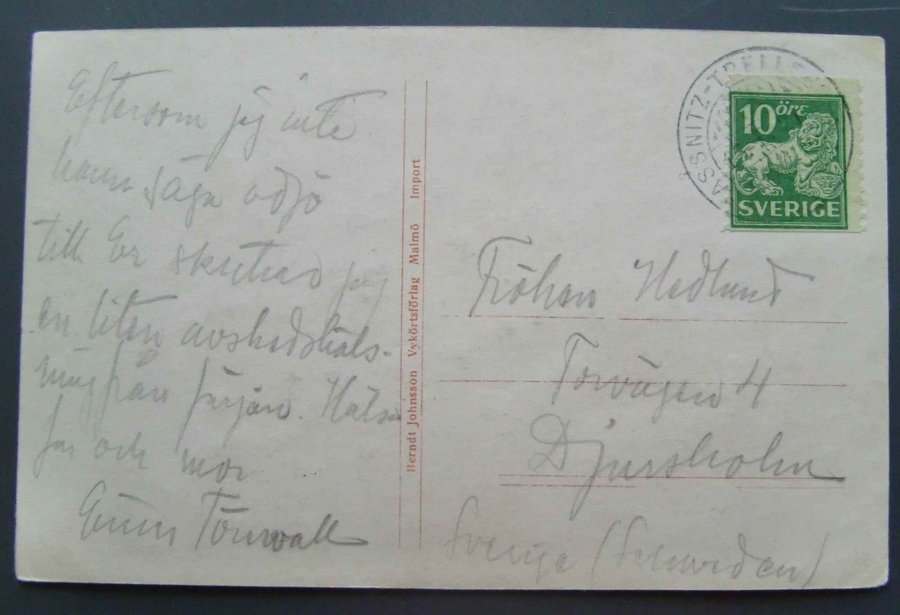 Eftersom jag inte
hann säga adjö
till Er skickar jag
en liten avskedshäls-
ning från färjan. Hälsa
far och mor
Törnwall
Berndt Johnsson Vykörtsförlag Malmö Import
ASSNITZ-TRELLE
10 öre
SVERIGE
Fröken Hedlund
Torvägen 4
Djursholm
Sverige (Schweden)